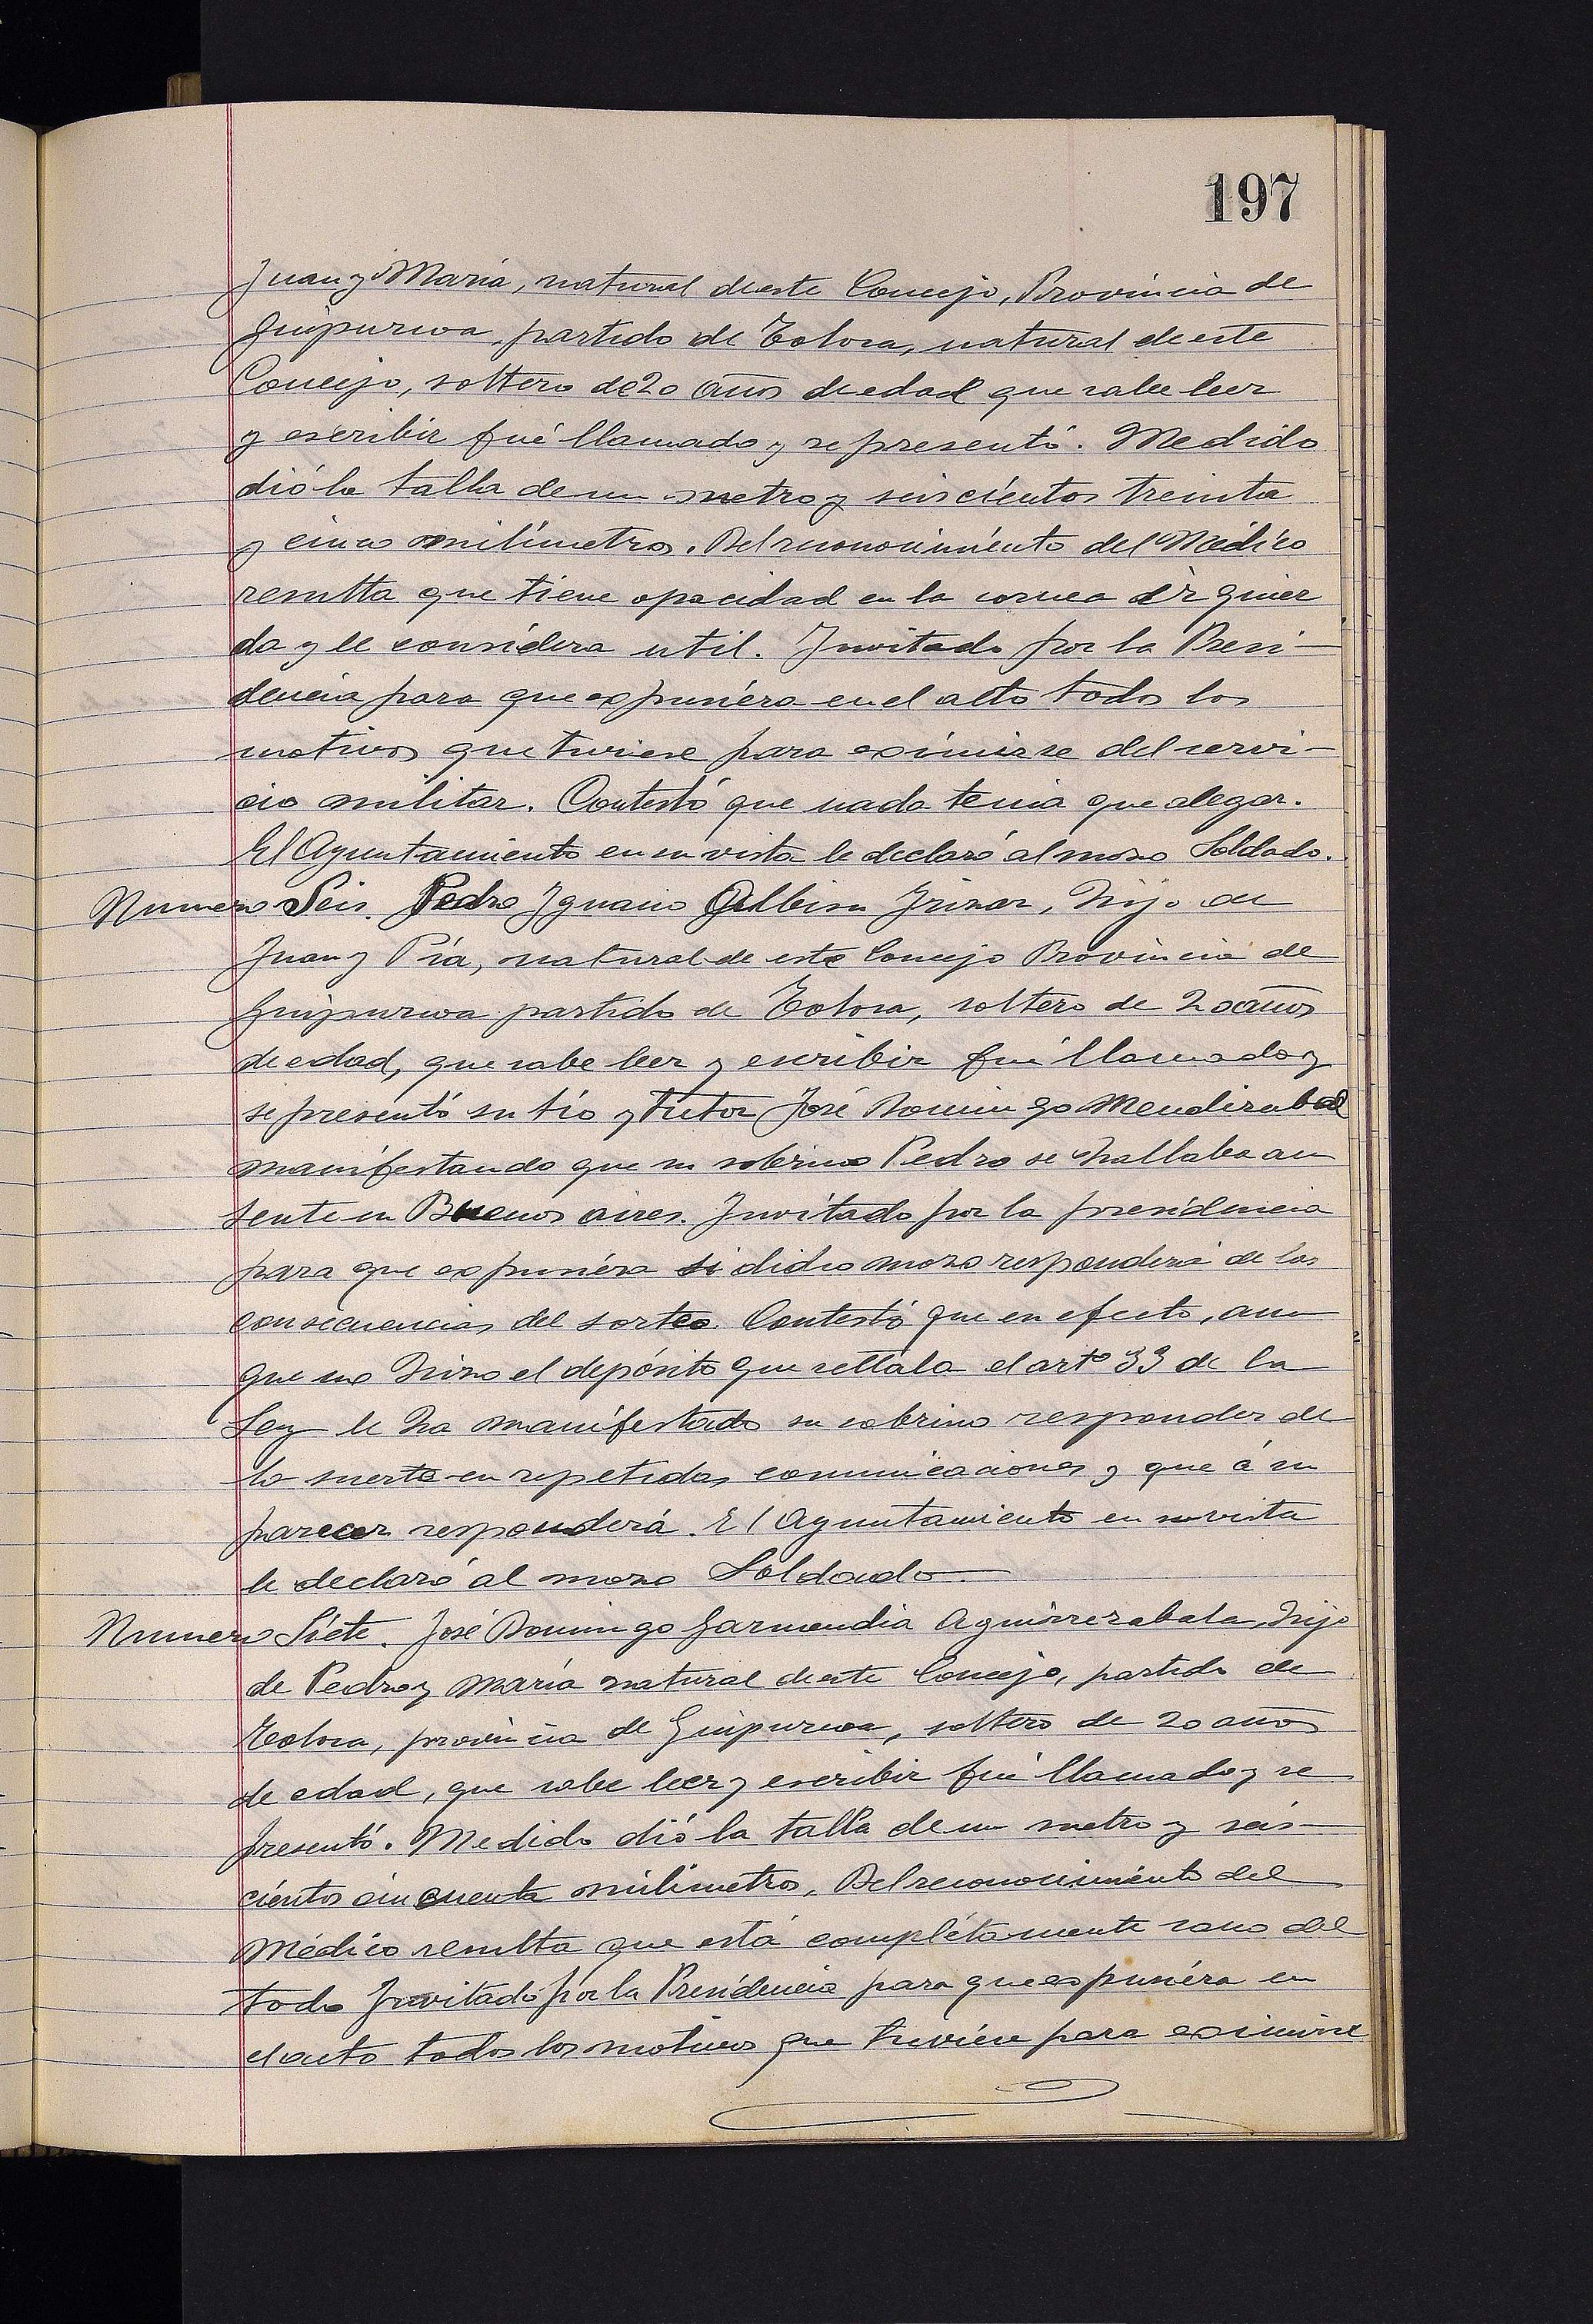 197
Juan y María, natural de este Concejo, Provincia de
Guipuzcoa, partido de Tolosa, natural de este
Concejo, soltero de 20 años de edad que sabe leer
y escribir fué llamado y se presentó. Medido
dió la talla de un metro y seiscientos treinta
y cinco milímetros. Del reconocimiento del Médico
resulta que tiene opacidad en la cornea izquier
da y le considera util. Invitado por la Presi-
dencia para que expusiera en el alto todos los
motivos que tuviese para eximirse del servi-
cio militar. Contestó que nada tenia que alegar.
El Ayuntamiento en su vista le declaró al mozo Soldado.
Numero Seis. Pedro Ignacio Irizar, hijo de
Juan y Pía, natural de este Concejo Provincia de
Guipuzcoa partido de Tolosa, soltero de 20 años
de edad, que sabe leer y escribir fué llamado y
se presentó su tío y tutor José Domingo Mendizabal
manifestando que su sobrino Pedro se hallaba au
sente en Buenos aires. Invitado por la presidencia
para que expusiéra si dicho mozo responderá de las
consecuencias del sorteo. Contestó que en efecto, aun
que no hizo el depósito que señala el artº 33 de la
Ley le ha manifestado su sobrino responder de
la suerte en repetidas comunicaciones y que á su
parecer responderá. El Ayuntamiento en su vista
le declaró al mozo Soldado
Numero Siete. José Domingo Garmendia Aguirrezabala, hijo
de Pedro y María natural de este Concejo, partido de
Tolosa, provincia de Guipuzcoa, soltero de 20 años
de edad, que sabe leer y escribir fué llamado y se
presentó. Medido dió la talla de un metro y seis-
cientos cincuenta milímetros, Del reconocimiento del
Médico resulta que está complétamente sano del
todo Invitado por la Presidencia para que expusiéra en
el acto todos los motivos que tuviése para eximirse